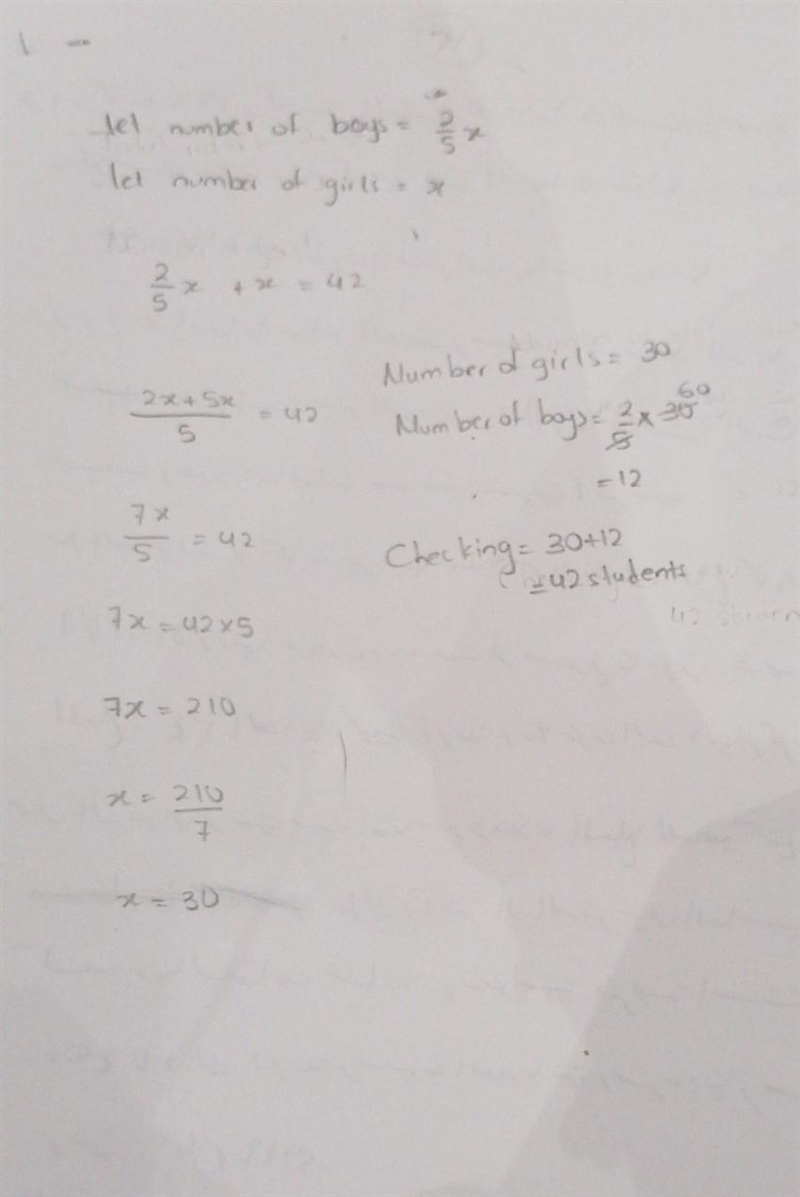 1 -
let number of boys = 2/5 x
let number of girls = x
2/5 x + x = 42
(2x + 5x)/5 = 42
7x/5 = 42
7x = 42 × 5
7x = 210
x = 210/7
x = 30
Number of girls = 30
Number of boys = 2/5 × 30 60
= 12
Checking = 30+12
= 42 students